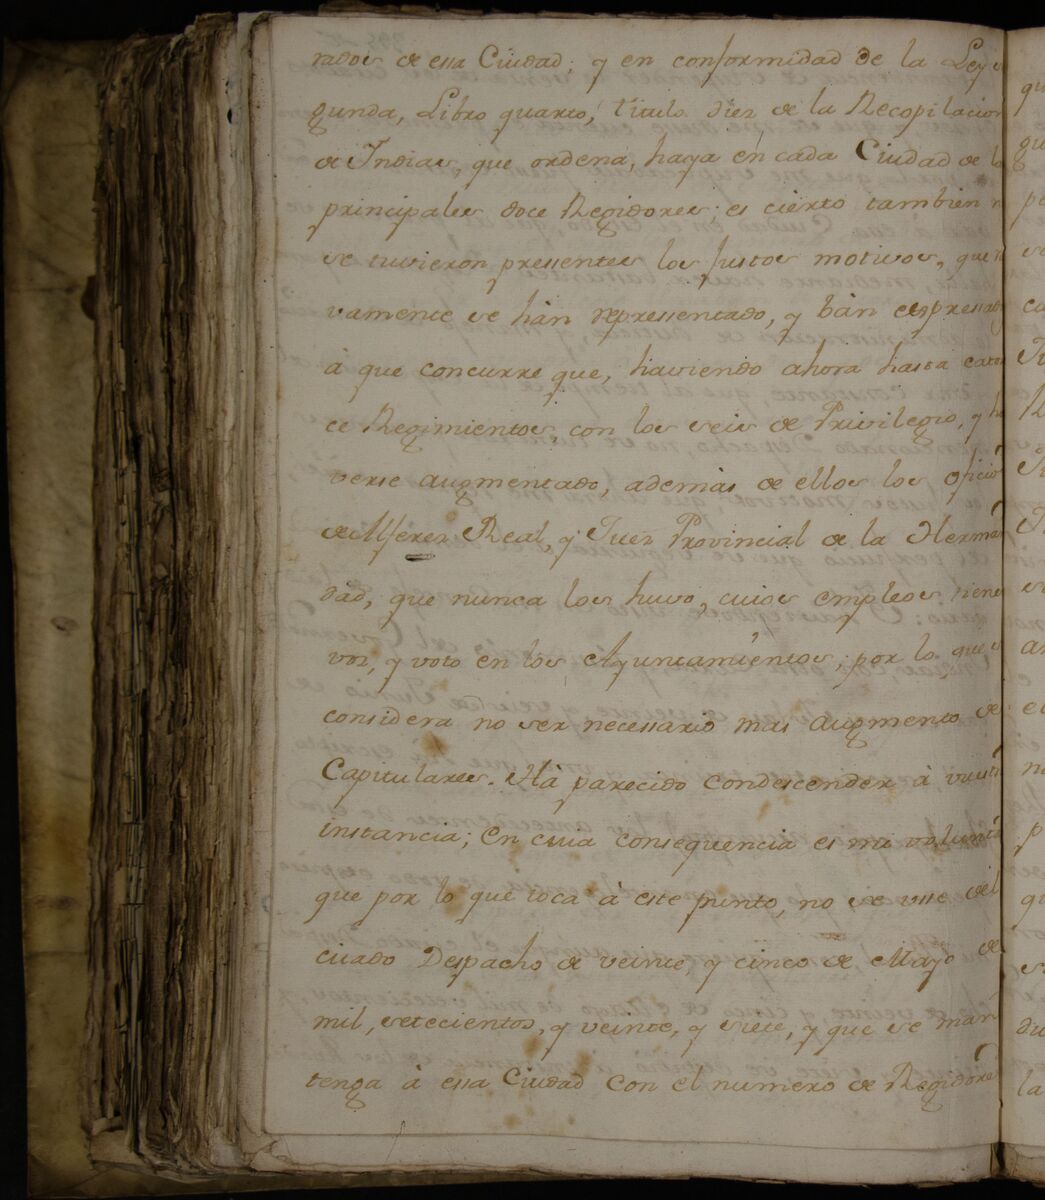 radores de essa Ciudad; y en conformidad de la Ley
gunda, Libro quarto, titulo diez de la Recopilacion
de Indias, que ordena, haya en cada Ciudad de l
principales doce Regidores; es cierto tambien n
se tuvieron pressentes los justos motivos, que
vamente se hàn representado, y bàn expressa
à que concurre que, haviendo ahora hasta cato
ce Regimientos, con los seis de Privilegio, y ha
verse augmentado, además de ellos los ofició
de Alferez Real, y Juez Provincial de la Herman
dad, que nunca los huvo, cuios empleos tiene
voz, y voto en los Ayuntamientos; por lo que s
considera no ser necessario mas augmento de
Capitulares. Há parecido condescender à vuest
instancia; En cuia consequencia es mi volunta
que por lo que toca à este punto, no se usse del
cittado Despacho de veinte, y cinco de Mayo de
mil, setecientos, y veinte, y siete, y que se man
tenga à essa Ciudad con el numero de Regidore